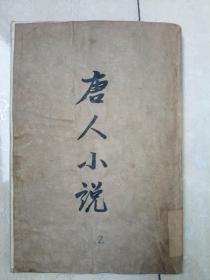 唐人小说
2